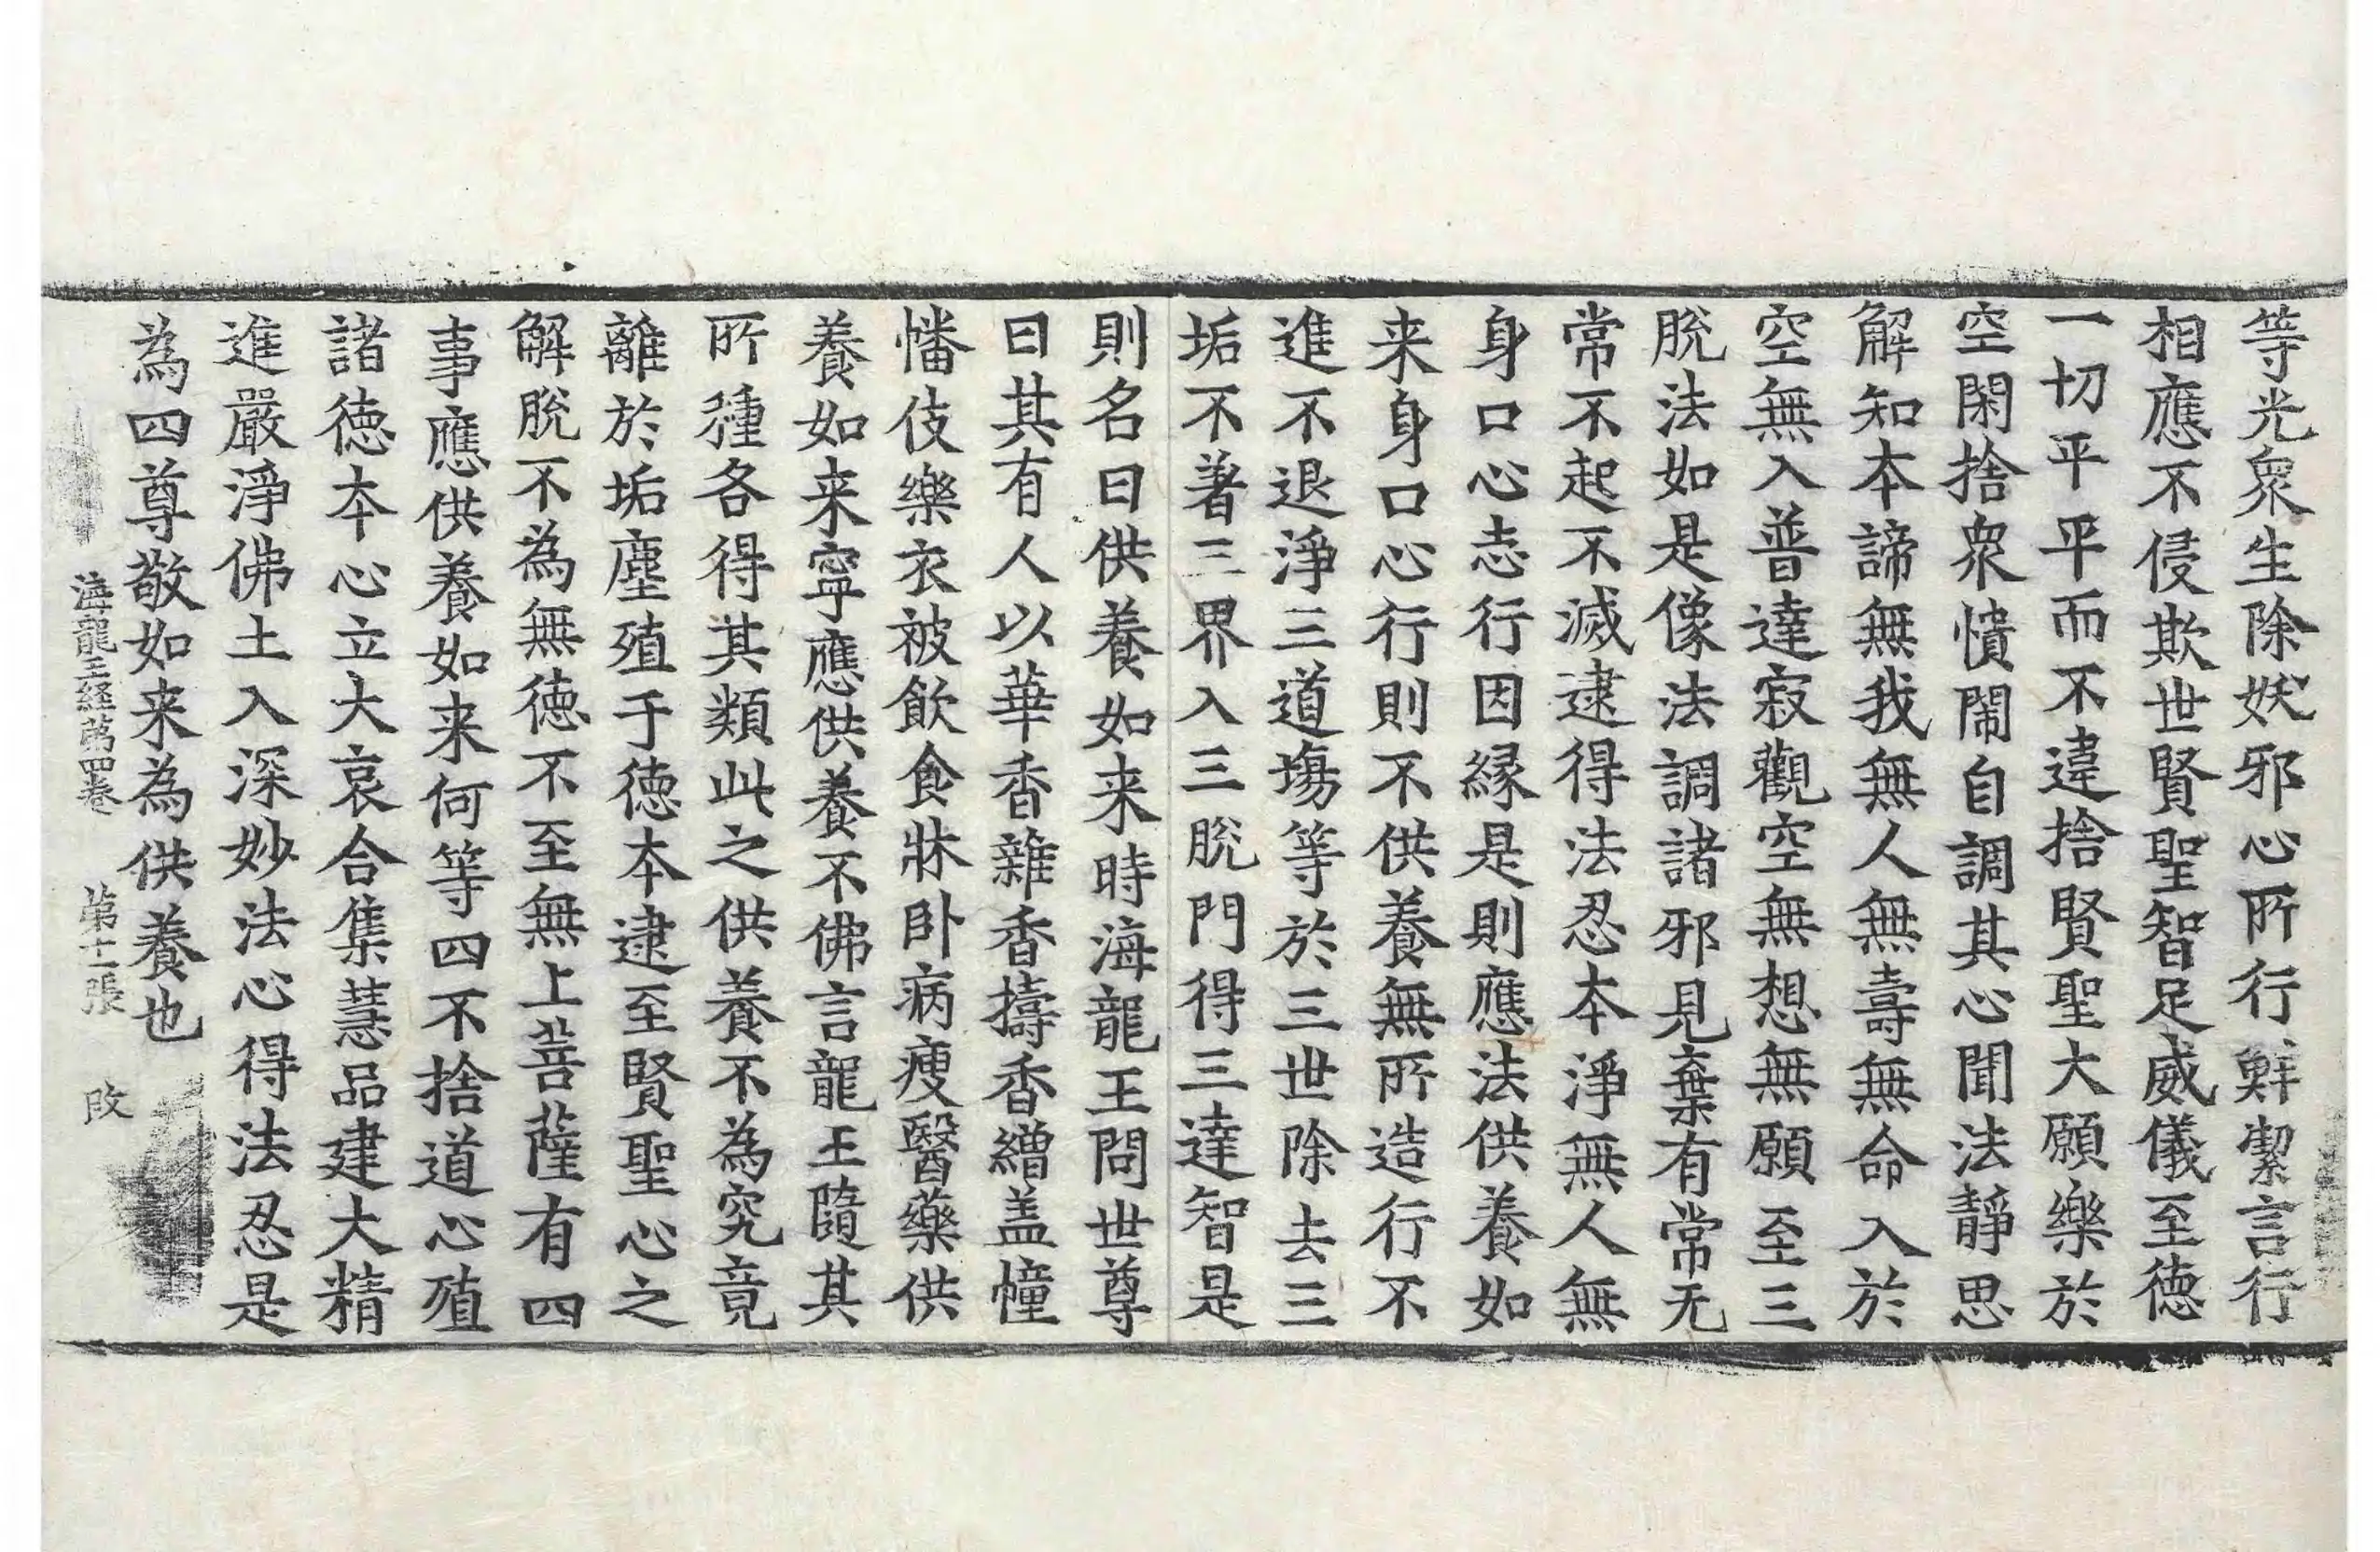 等光衆生除妖邪心所行鮮潔言行
相應不侵欺世賢聖智足威儀至德
一切平平而不違捨賢聖大願樂於
空閑捨衆憒閙自調其心聞法靜思
解知本諦無我無人無壽無命入於
空無入普達寂觀空無想無願至三
脫法如是像法調諸邪見棄有常无
常不起不滅逮得法忍本淨無人無
身口心志行因緣是則應法供養如
来身口心行則不供養無所造行不
進不退淨三道塲等於三世除去三
垢不著三界入三脫門得三達智是
則名曰供養如来時海龍王問世尊
曰其有人以華香雜香擣香繒盖幢
幡伎樂衣被飲食牀卧病瘦醫藥供
養如来寧應供養不佛言龍王隨其
所種各得其類此之供養不為究竟
離於垢塵殖于德本逮至賢聖心之
解脫不為無德不至無上菩薩有四
事應供養如来何等四不捨道心殖
諸德本心立大哀合集慧品建大精
進嚴淨佛土入深妙法心得法忍是
為四尊敬如来為供養也
海龍王経苐四卷 第十一張 改